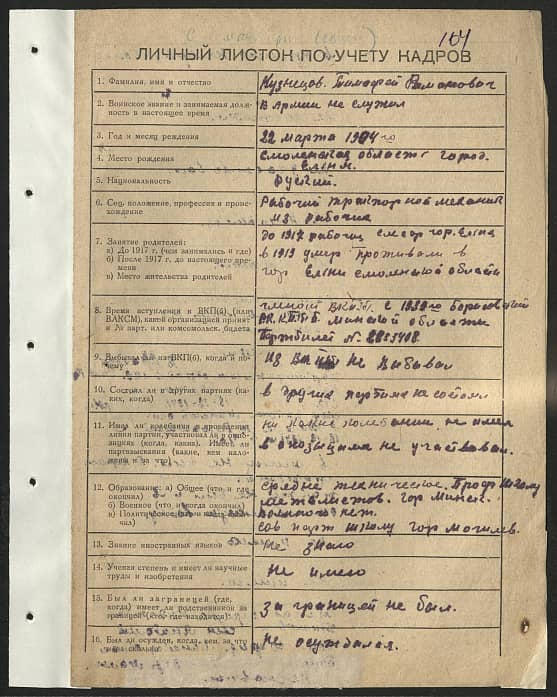 104
ЛИЧНЫЙ ЛИСТОК ПО УЧЕТУ КАДРОВ
1. Фамилия, имя и отчество
Кузнецов. Тимофей Раманович
2. Воинское звание и занимаемая долж-
ность в настоящее время
В Армии не служил
3. Год и месяц рождения
22 марта 1904 го
4. Место рождения
Смоленская область город.
Ельня.
5. Национальность
Руский.
6. Соц. положение, профессия и проис-
хождение
Рабочий механик
из рабочих
7. Занятие родителей:
а) До 1917 г. (чем занимались и где)
б) После 1917 г. до настоящего вре-
мени
в) Место жительства родителей
до 1917 рабочий гор. Елня
в 1919 умер проживали в
гор Елни смоленской области
8. Время вступления в ВКП(б) (или
ВЛКСМ), какой организацией принят
и № парт. или комсомольск. билета
с 1932 го Борисовский
Минской области
Партбилет №
9. Выбывал ли из ВКП(б), когда и по-
чему
Из не выбывал
10. Состоял ли в других партиях (ка-
ких, когда)
в других партиях не состоял
11. Имел ли колебания в проведении
линии партии, участвовал ли в оппо-
зициях (когда, каких). Имеет ли
партвзыскания (какие, кем нало-
жены и за что)
ни какие колебании не имел
в апозициях не участвовал.
12. Образование: а) Общее (что и где
окончил)
б) Военное (что и когда окончил)
в) Политическое (что и где окон-
чил)
средне техническое. Проф школу
металистов. гор Минск.
Военного нет.
сов парт школу гор Могилев.
13. Знание иностранных языков
Не знаю
14. Ученая степень и имеет ли научные
труды и изобретения
Не имею
15. Был ли заграницей (где,
когда) имеет ли родственников за
границей (кто где находится)
За границей не был.
16. Был ли осужден, когда, кем, за что
и на сколько
не осуждался.